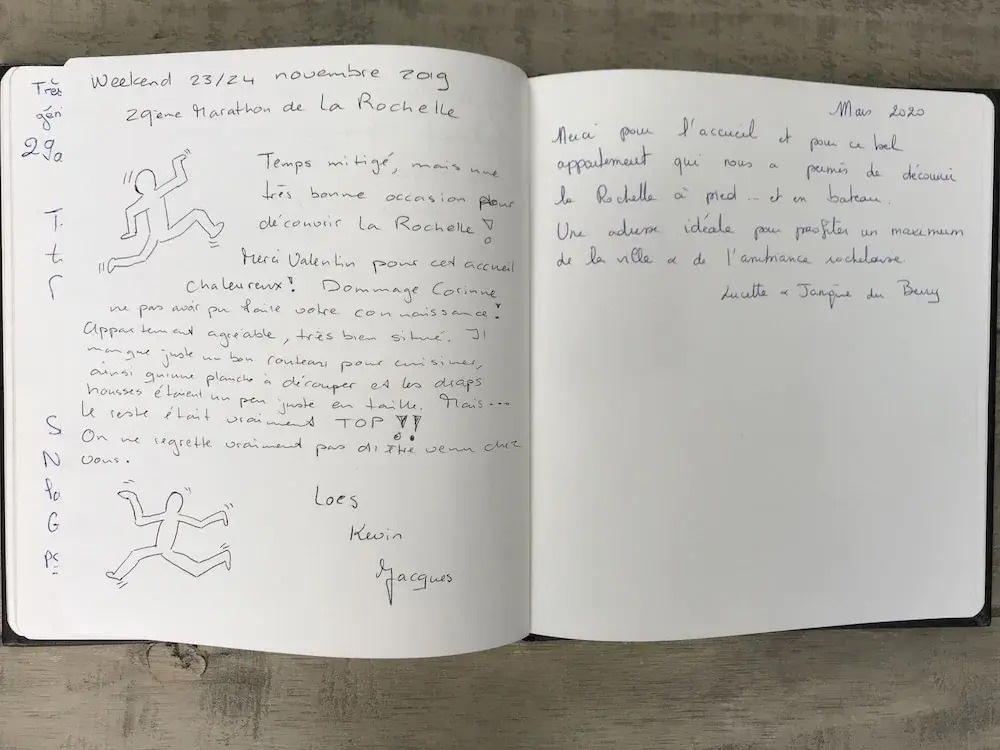 Très
gén
29a
T.
t.
S
N
G
ps
Weekend 23/24 novembre 2019
29ème Marathon de La Rochelle
Temps mitigé, mais une
très bonne occasion pour
découvrir La Rochelle !
Merci Valentin pour cet accueil
chaleureux! Dommage Corinne
ne pas avoir pu faire votre connaissance!
Appartement agréable, très bien situé. Il
manque juste un bon couteau pour cuisiner,
ainsi qu'une planche à découper et les draps
housses étaient un peu juste en taille. Mais...
le reste était vraiment TOP !!
On ne regrette vraiment pas d'être venu chez
vous.
Loes
Kevin
Jacques
Mars 2020
Merci pour l'accueil et pour ce bel
appartement qui nous a permis de découvrir
la Rochelle à pied... et en bateau.
Une adresse idéale pour profiter un maximum
de la ville & de l'ambiance rochelaise.
Lucette & Janine du Berry